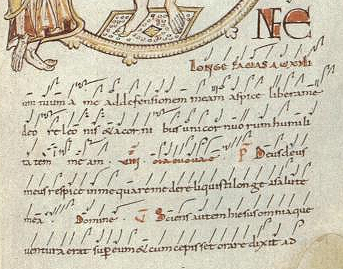 NE
LONGE FACIAS AUXILI
um tuum a me ad defensionem meam aspice libera me
deo re leo nis & acor ni bus uni cor nuo rum humili
ta tem me am. euouae P Deus deus
meus respice in me quare me dere liquisti longe asalute
mea. Domine Sciens autem hiesus omnia que
ventura erat super eum & cum cepisset orare dixit ad